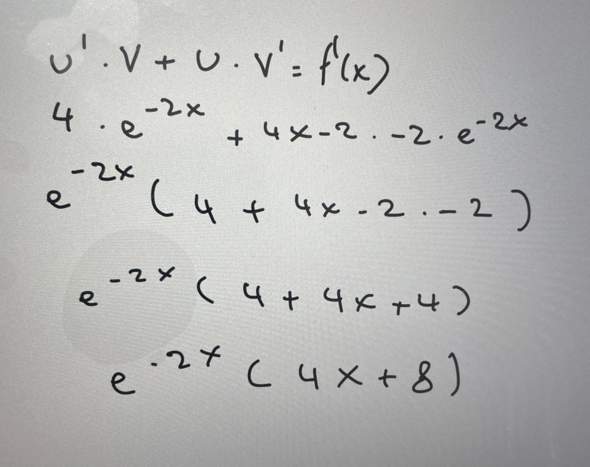 u' · v + u · v' = f'(x)
4 · e^{-2x} + 4x - 2 · -2 · e^{-2x}
e^{-2x} (4 + 4x - 2 · -2)
e^{-2x} (4 + 4x + 4)
e^{-2x} (4x + 8)